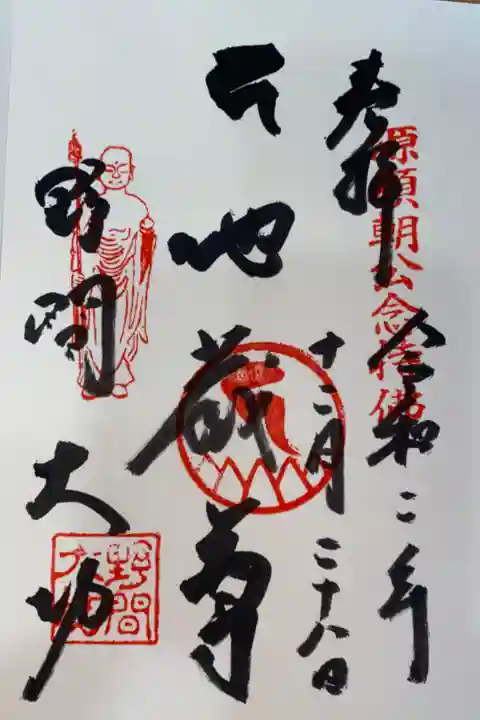 源頼朝公念持佛
奉拝 令和二年
十二月二十八日
地蔵尊
野間大坊
野間
大坊